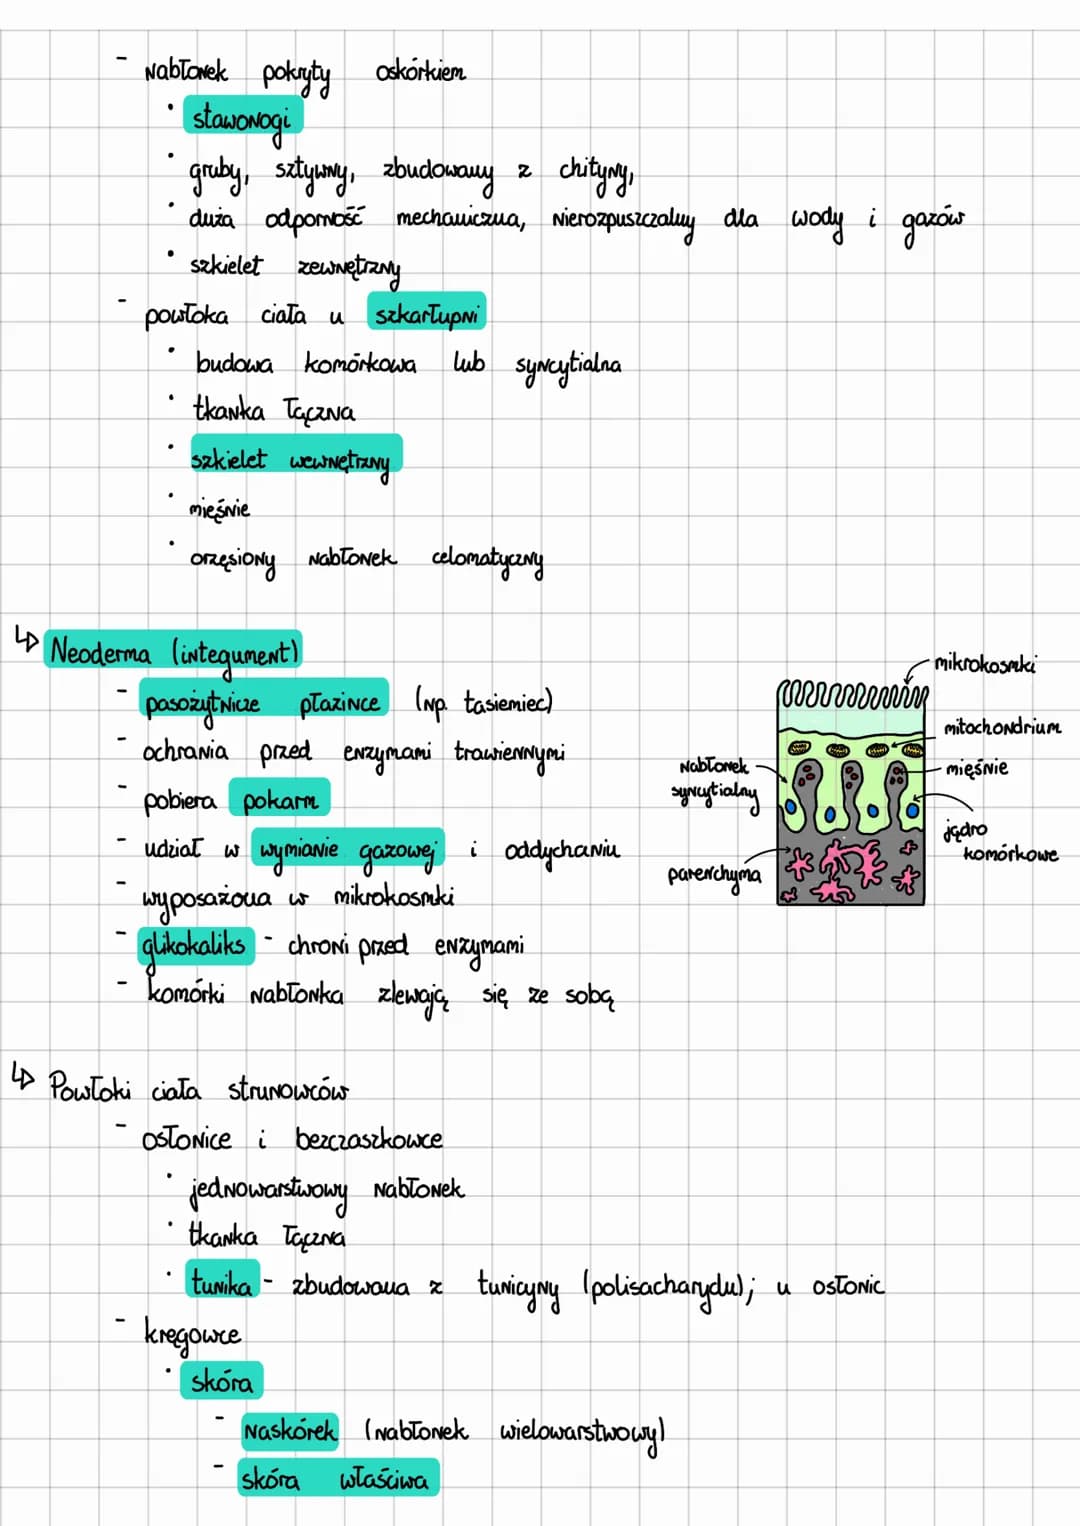 - nabłonek pokryty oskórkiem
• stawonogi
• gruby, sztywny, zbudowany z chityny,
• duża odporność mechaniczna, nierozpuszczalny dla wody i gazów
• szkielet zewnętrzny
- powłoka ciała u szkarłupni
• budowa komórkowa lub syncytialna
• tkanka łączna
• szkielet wewnętrzny
• mięśnie
• orzęsiony nabłonek celomatyczny
↳ Neoderma (integument)
- pasożytnicze płazińce (np. tasiemiec)
- ochrania przed enzymami trawiennymi
- pobiera pokarm
- udział w wymianie gazowej i oddychaniu
- wyposażona w mikrokosmki
- glikokaliks - chroni przed enzymami
- komórki nabłonka zlewają się ze sobą
mikrokosmki
mitochondrium
mięśnie
jądro
komórkowe
nabłonek
syncytialny
parenchyma
↳ Powłoki ciała strunowców
- osłonice i bezczaszkowce
• jednowarstwowy nabłonek
• tkanka łączna
• tunika - zbudowana z tunicyny (polisacharydu); u osłonic
- kręgowce
• skóra
- naskórek (nabłonek wielowarstwowy)
- skóra właściwa